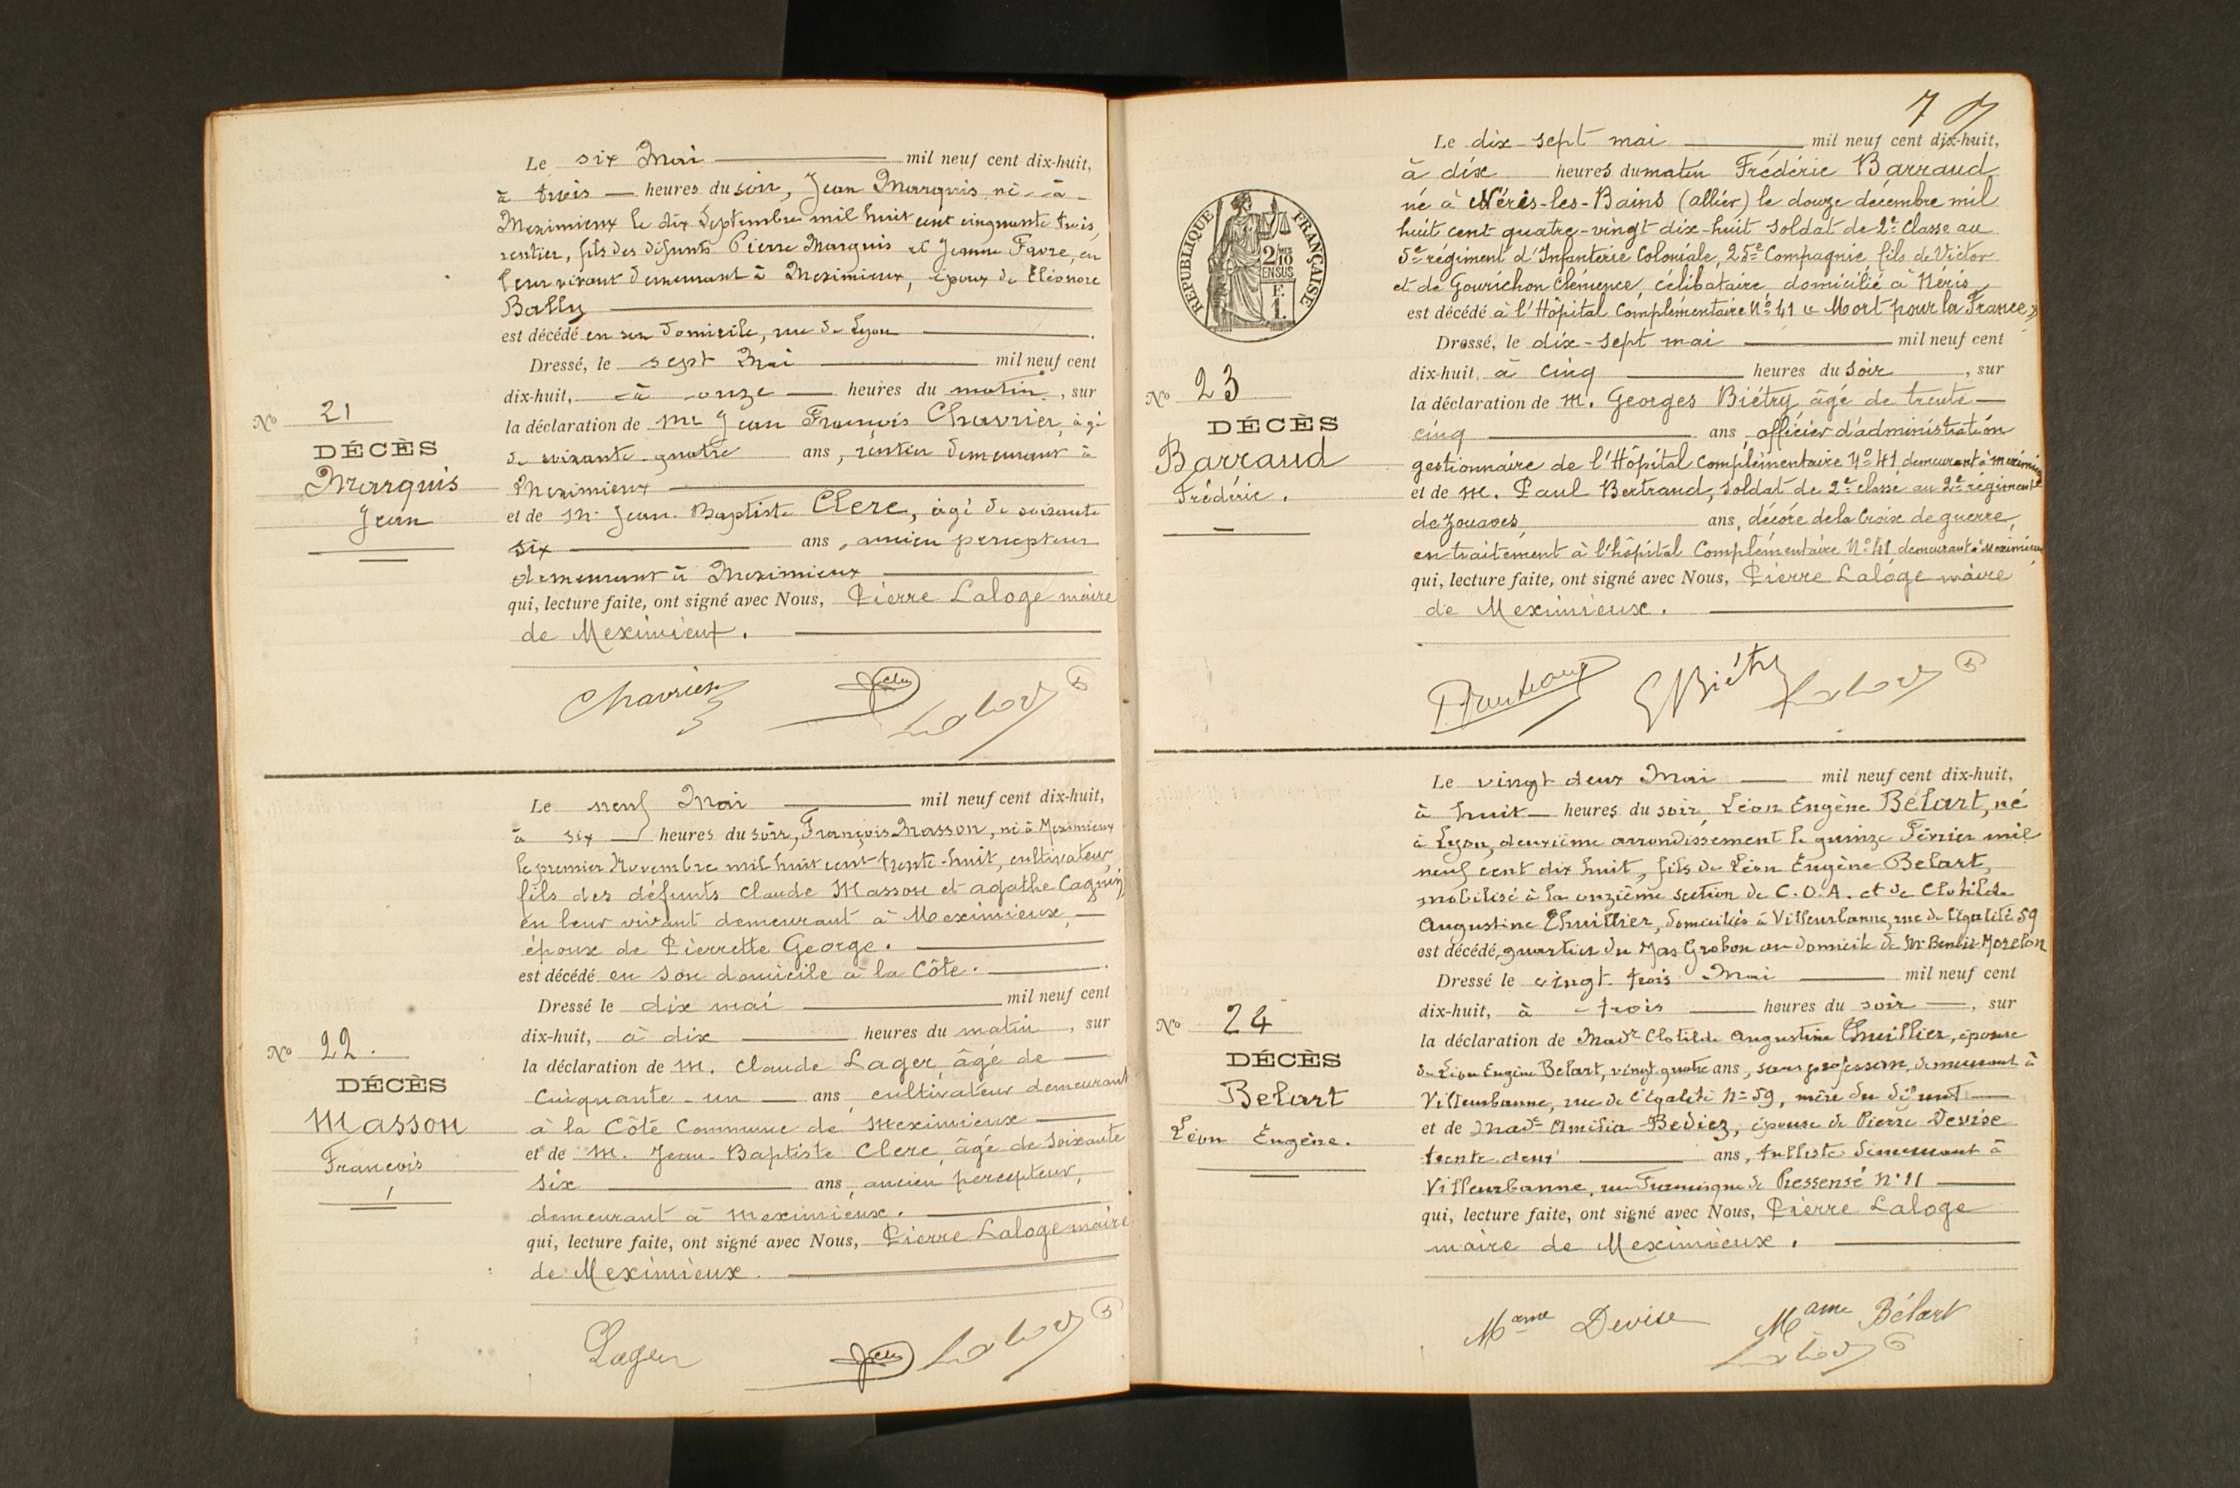 Le six Mai mil neuf cent dix-huit,
à trois heures du soir, Jean Marquis né à
Meximieux le dix Septembre mil huit cent cinquante trois,
rentier, fils des défunts Pierre Marquis et Jeanne Favre, en
leur vivant demeurant à Meximieux, époux de Eléonore
Bally
est décédé en son domicile, rue de Lyon
Dressé, le sept Mai mil neuf cent
dix-huit, à onze heures du matin, sur
No 21
la déclaration de Mr Jean François Chavrier, âgé
DÉCÈS
de soixante quatre ans, rentier demeurant à
Marquis
Meximieux
Jean
et de Mr Jean-Baptiste Clerc, âgé de soixante
six ans, ancien percepteur
demeurant à Meximieux
qui, lecture faite, ont signé avec Nous, Pierre Laloge maire
de Meximieux.
Chavrier
Le neuf Mai mil neuf cent dix-huit,
à six heures du soir, François Masson, né à Meximieux
le premier Novembre mil huit cent trente-huit, cultivateur,
fils des défunts Claude Masson et agathe Cagnin
en leur vivant demeurant à Meximieux,
époux de Pierrette George.
est décédé en son domicile à la Côte.
Dressé le dix mai mil neuf cent
dix-huit, à dix heures du matin, sur
No 22.
la déclaration de M. Claude Lager, âgé de
DÉCÈS
cinquante-un ans, cultivateur demeurant
Masson
à la Côte Commune de Meximieux
François
et de M. Jean-Baptiste Clerc, âgé de soixante
six ans, ancien percepteur,
demeurant à Meximieux.
qui, lecture faite, ont signé avec Nous, Pierre Laloge maire
de Meximieux.
Lager
7
Le dix-sept mai mil neuf cent dix-huit,
à dix heures du matin Frédéric Barraud
né à Néris-les-Bains (allier) le douze décembre mil
huit cent quatre-vingt dix-huit soldat de 2e classe au
5e régiment d'Infanterie Coloniale, 25e Compagnie fils de Victor
et de Gourichon Clémence, célibataire domicilié à Néris
est décédé à l'Hôpital Complémentaire No 41 « Mort pour la France »
RÉPUBLIQUE FRANÇAISE
2/10
EN SUS
F.
1.
Dressé, le dix-sept mai mil neuf cent
dix-huit, à cinq heures du soir, sur
No 23
la déclaration de M. Georges Biétry âgé de trente
DÉCÈS
cinq ans, officier d'administration
Barraud
gestionnaire de l'Hôpital Complémentaire No 41 demeurant à Meximieux
Frédéric.
et de M. Paul Bertrand, soldat de 2e classe au 2e régiment
de Zouaves ans, décoré de la Croix de guerre,
en traitement à l'hôpital Complémentaire No 41 demeurant à Meximieux
qui, lecture faite, ont signé avec Nous, Pierre Laloge maire
de Meximieux.
GBiétry
Le vingt deux Mai mil neuf cent dix-huit,
à huit heures du soir, Léon Eugène Belart, né
à Lyon, deuxième arrondissement le quinze Février mil
neuf cent dix huit, fils de Léon Eugène Belart,
mobilisé à la onzième section de C.O.A. et de Clotilde
Augustine Thuillier, domiciliés à Villeurbanne, rue de l'égalité 59
est décédé, quartier du Mas Grobon au domicile de Mr Benoît Morelon
Dressé le vingt trois Mai mil neuf cent
dix-huit, à trois heures du soir, sur
No 24
la déclaration de Made Clotilde Augustine Thuillier, épouse
DÉCÈS
de Léon Eugène Belart, vingt quatre ans, sans profession, demeurant à
Belart
Villeurbanne, rue de l'égalité No 59, mère du défunt
Léon Eugène.
et de Made Amélia Bediez, épouse de Pierre Devise
trente deux ans, tulliste demeurant à
Villeurbanne, rue Francisque de Pressensé No 11
qui, lecture faite, ont signé avec Nous, Pierre Laloge
maire de Meximieux.
Mame Devise Mame Bélart